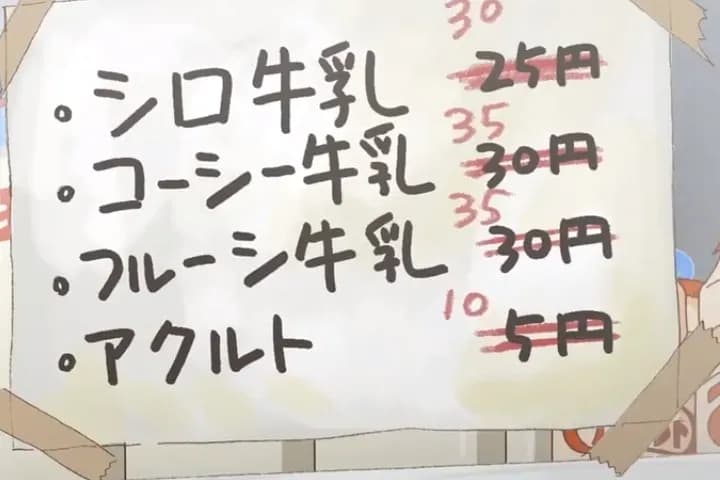 30
・シロ牛乳 25円
35
・コーシー牛乳 30円
35
・フルーシ牛乳 30円
10
・アクルト 5円